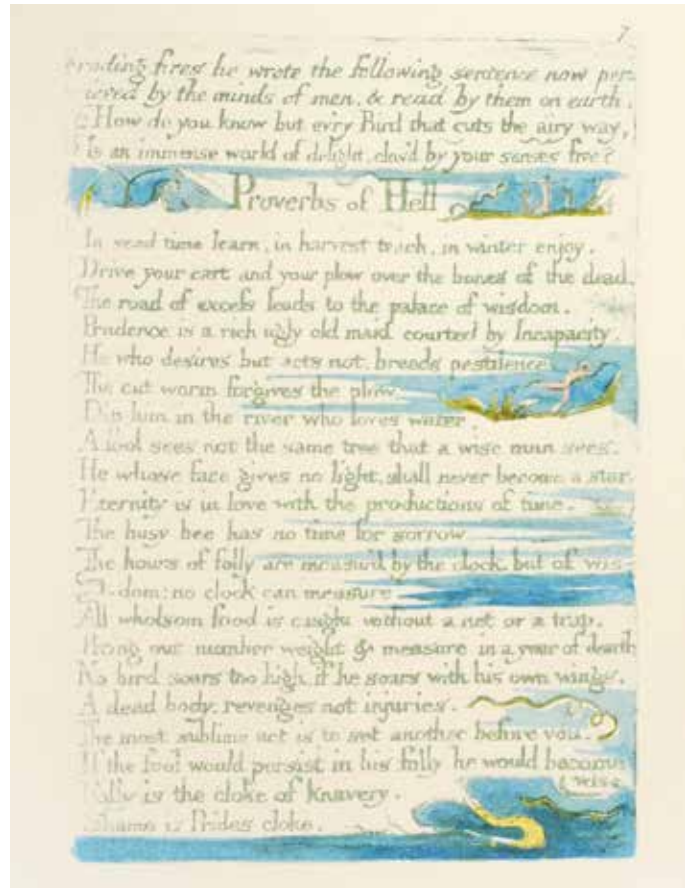 7
roding fires he wrote the following sentence now per-
cieved by the minds of men, & read by them on earth.
How do you know but ev'ry Bird that cuts the airy way,
Is an immense world of delight, clos'd by your senses five?
Proverbs of Hell
In seed time learn, in harvest teach, in winter enjoy.
Drive your cart and your plow over the bones of the dead.
The road of excess leads to the palace of wisdom.
Prudence is a rich ugly old maid courted by Incapacity.
He who desires but acts not, breeds pestilence.
The cut worm forgives the plow.
Dip him in the river who loves water.
A fool sees not the same tree that a wise man sees.
He whose face gives no light, shall never become a star.
Eternity is in love with the productions of time.
The busy bee has no time for sorrow.
The hours of folly are measur'd by the clock, but of wis-
-dom: no clock can measure.
All wholsom food is caught without a net or a trap.
Bring out number weight & measure in a year of dearth
No bird soars too high, if he soars with his own wings.
A dead body, revenges not injuries.
The most sublime act is to set another before you.
If the fool would persist in his folly he would become
wise
Folly is the cloke of knavery.
Shame is Prides cloke.